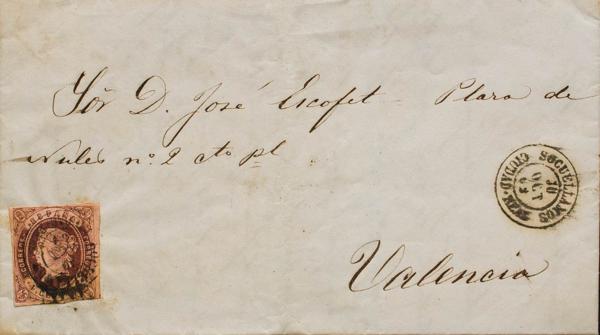 Sor D. José Escofet - Plaza de
Nules nº. 2 cto pl
SOCUELLAMOS
10
OCT
63
CIUDAD-REAL
CORREOS
Valencia